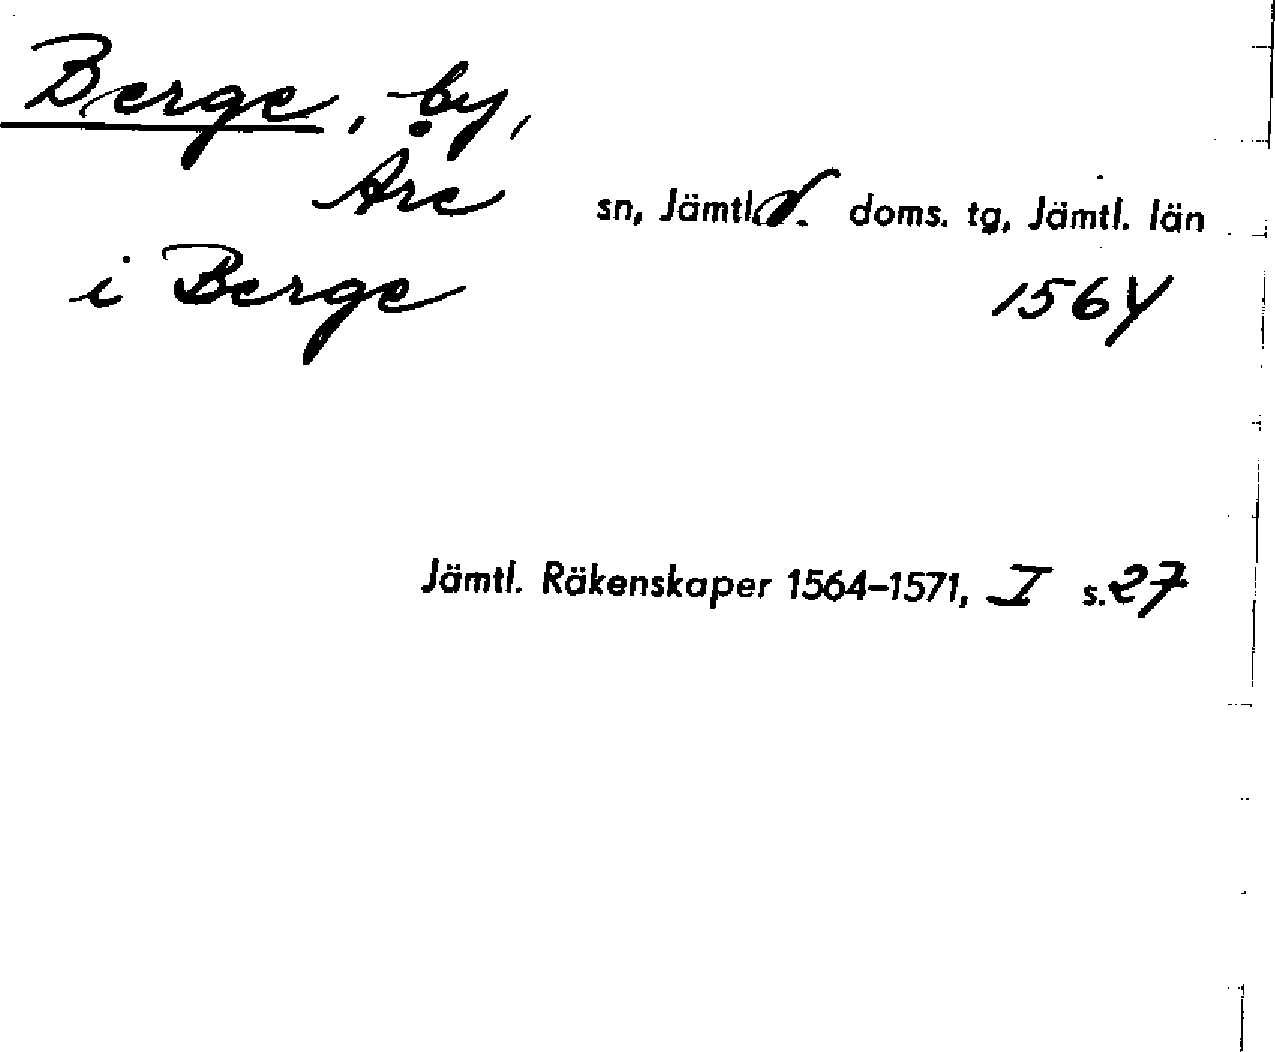 Berge, by,
Åre sn, Jämtl. V. doms. tg, Jämtl. län
i Berge 1564
Jämtl. Räkenskaper 1564-1571, I s. 27